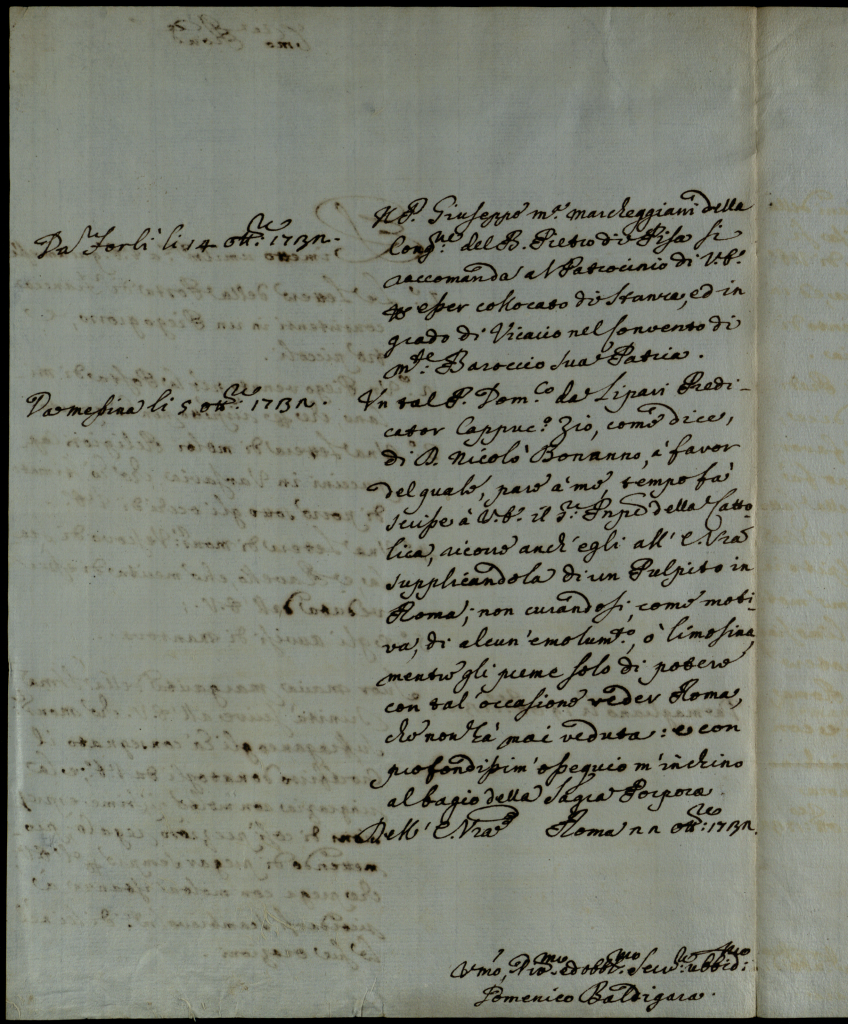 Da Forlì li 14 Ott.re 1732.
Il P. Giuseppe M.a Marcheggiani della
Cong.ne del B. Pietro di Pisa si
raccomanda al Patrocinio di V.E.
esser collocato di Stanza, ed in
grado di Vicario nel Convento di
M.te Baroccio sua Patria.
Da Messina li 5 Ott.re 1732.
Un tal P. Dom.co da Lipari Predi-
cator Cappuc.o Zio, come dice,
di D. Nicolò Bonanno, à favor
del quale, pare à me, tempo fà
scrisse à V.E. il S.r Pnpe della Catto-
lica, ricorre anch'egli all' E. Vra
supplicandola di un Pulpito in
Roma; non curandosi, come moti-
va, di alcun'emolum.to, ò limosina,
mentre gli preme solo di potere
con tal'occasione veder Roma,
che non hà mai veduta: e con
profondissim'ossequio m'inchino
al bagio della Sagra Porpora.
Dell' E. Vra Roma 22 Ott.re 1732.
Vmo, Divmo ed obblmo Serv.re
Domenico Baldigara.